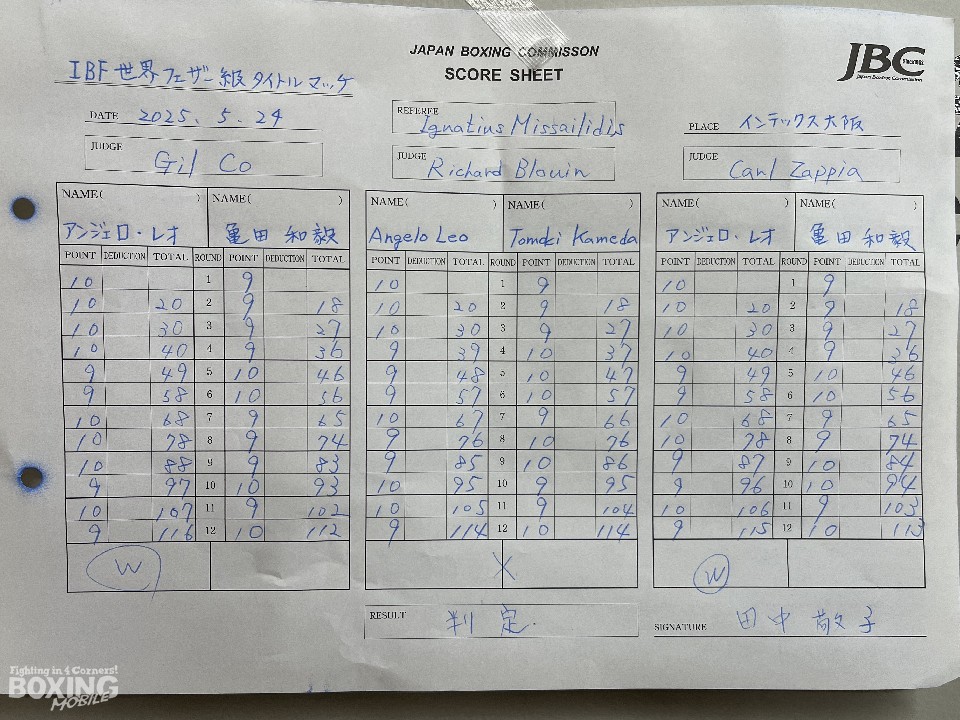 JAPAN BOXING COMMISSON
SCORE SHEET
JBC
Since 1952
Japan Boxing Commission
IBF世界フェザー級タイトルマッチ
DATE 2025. 5. 24
REFEREE Ignatius Missailidis
PLACE インテックス大阪
JUDGE Gil Co
JUDGE Richard Blouin
JUDGE Carl Zappia
NAME( ) NAME( ) NAME( ) NAME( ) NAME( ) NAME( )
アンジェロ・レオ 亀田 和毅 Angelo Leo Tomoki Kameda アンジェロ・レオ 亀田 和毅
POINT DEDUCTION TOTAL ROUND POINT DEDUCTION TOTAL POINT DEDUCTION TOTAL ROUND POINT DEDUCTION TOTAL POINT DEDUCTION TOTAL ROUND POINT DEDUCTION TOTAL
10 1 9 10 1 9 10 1 9
10 20 2 9 18 10 20 2 9 18 10 20 2 9 18
10 30 3 9 27 10 30 3 9 27 10 30 3 9 27
10 40 4 9 36 9 39 4 10 37 10 40 4 9 36
9 49 5 10 46 9 48 5 10 47 9 49 5 10 46
9 58 6 10 56 9 57 6 10 57 9 58 6 10 56
10 68 7 9 65 10 67 7 9 66 10 68 7 9 65
10 78 8 9 74 9 76 8 10 76 10 78 8 9 74
10 88 9 9 83 9 85 9 10 86 9 87 9 10 84
9 97 10 10 93 10 95 10 9 95 9 96 10 10 94
10 107 11 9 102 10 105 11 9 104 10 106 11 9 103
9 116 12 10 112 9 114 12 10 114 9 115 12 10 113
W X W
RESULT 判定.
SIGNATURE 田中 敬子
Fighting in 4 Corners!
BOXING
MOBILE